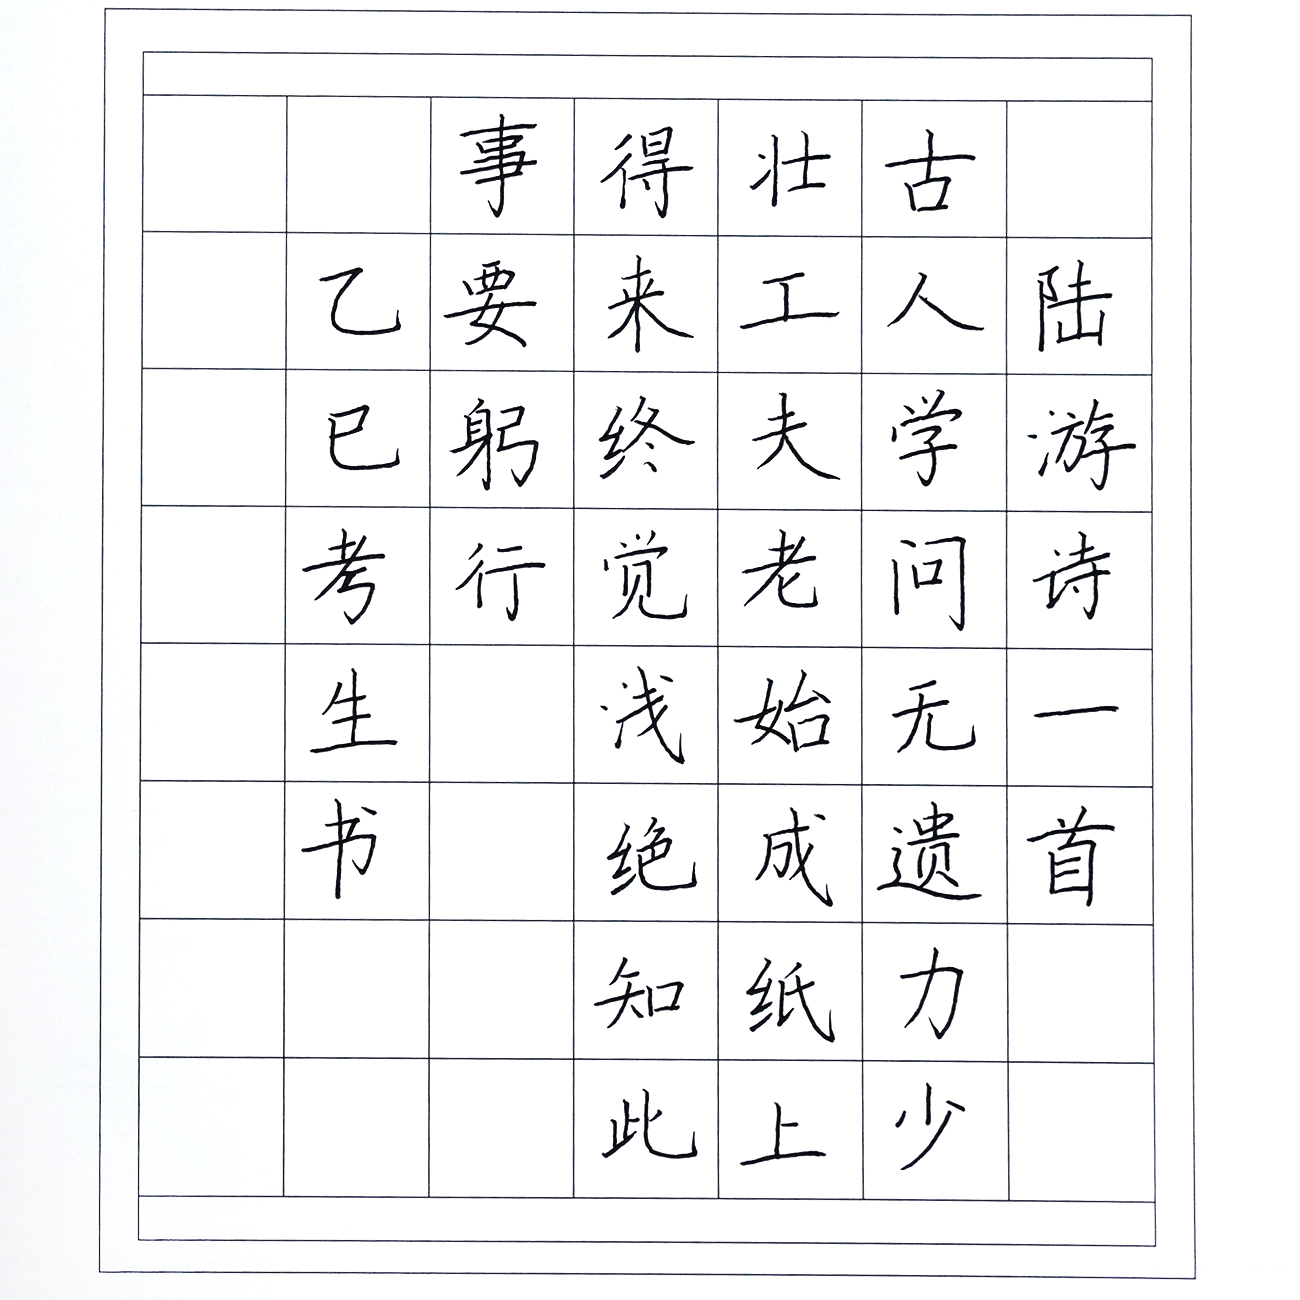 陆游诗一首
古人学问无遗力少
壮工夫老始成纸上
得来终觉浅绝知此
事要躬行
乙巳考生书